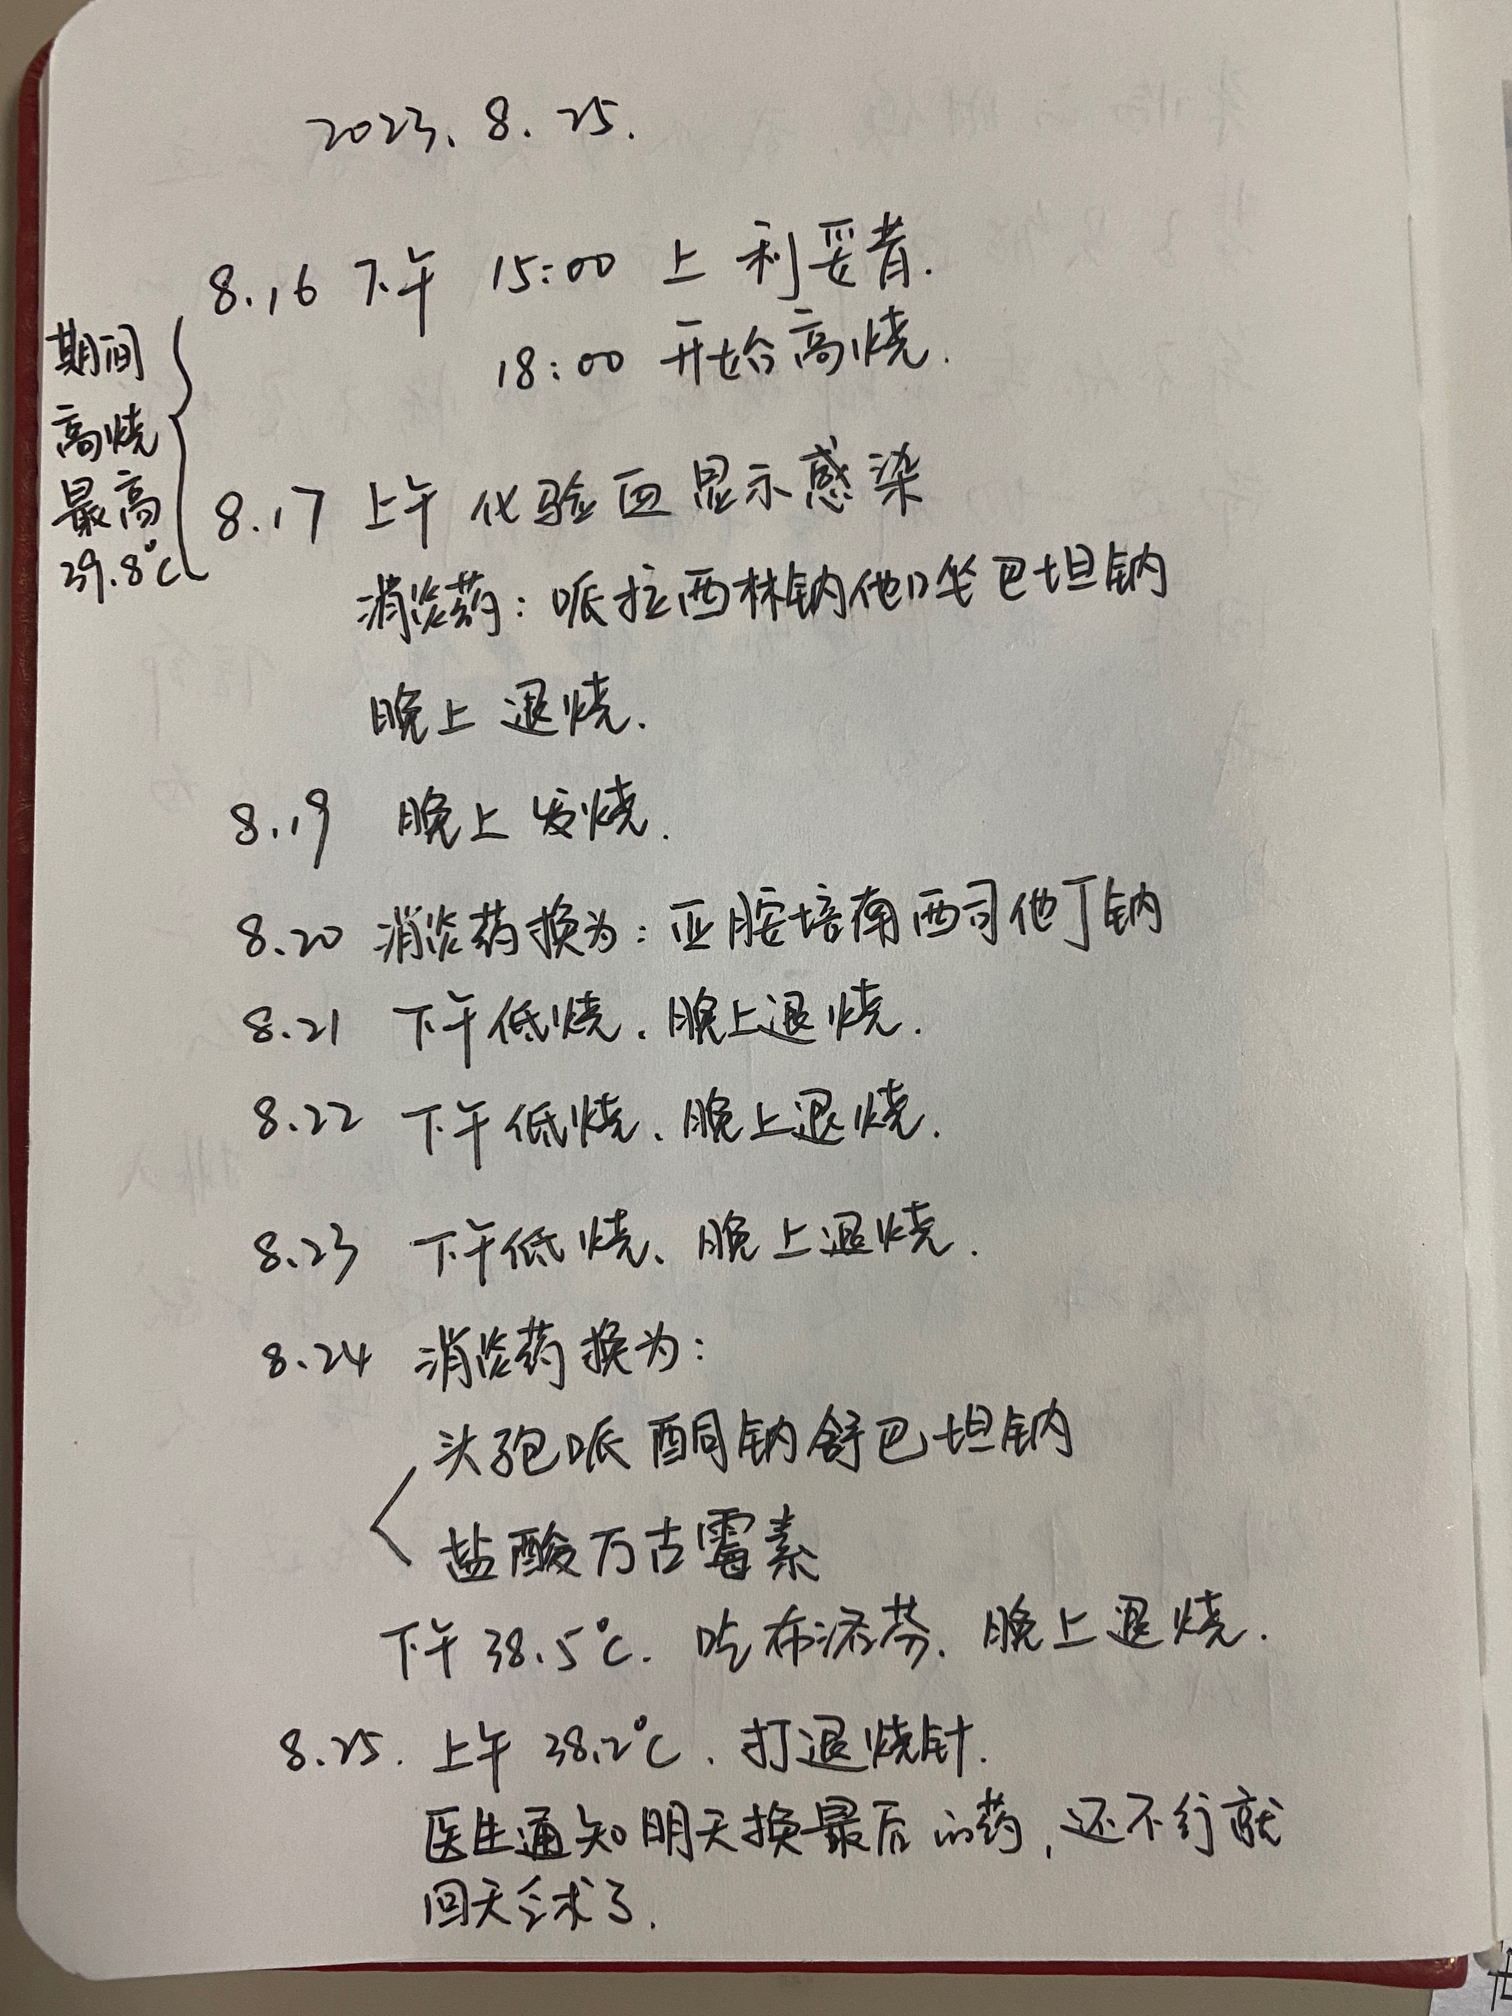 2023. 8. 25.
8.16 下午 15:00 上 利妥昔.
18:00 开始高烧.
期间
高烧
最高
39.8℃
8.17 上午 化验血显示感染
消炎药：哌拉西林钠他唑巴坦钠
晚上 退烧.
8.19 晚上 发烧.
8.20 消炎药换为：亚胺培南西司他丁钠
8.21 下午低烧、晚上退烧.
8.22 下午低烧、晚上退烧.
8.23 下午低烧、晚上退烧.
8.24 消炎药换为：
头孢哌酮钠舒巴坦钠
盐酸万古霉素
下午 38.5℃. 吃布洛芬. 晚上退烧.
8.25. 上午 38.2℃、打退烧针.
医生通知明天换最后的药，还不行就
回天乏术了.